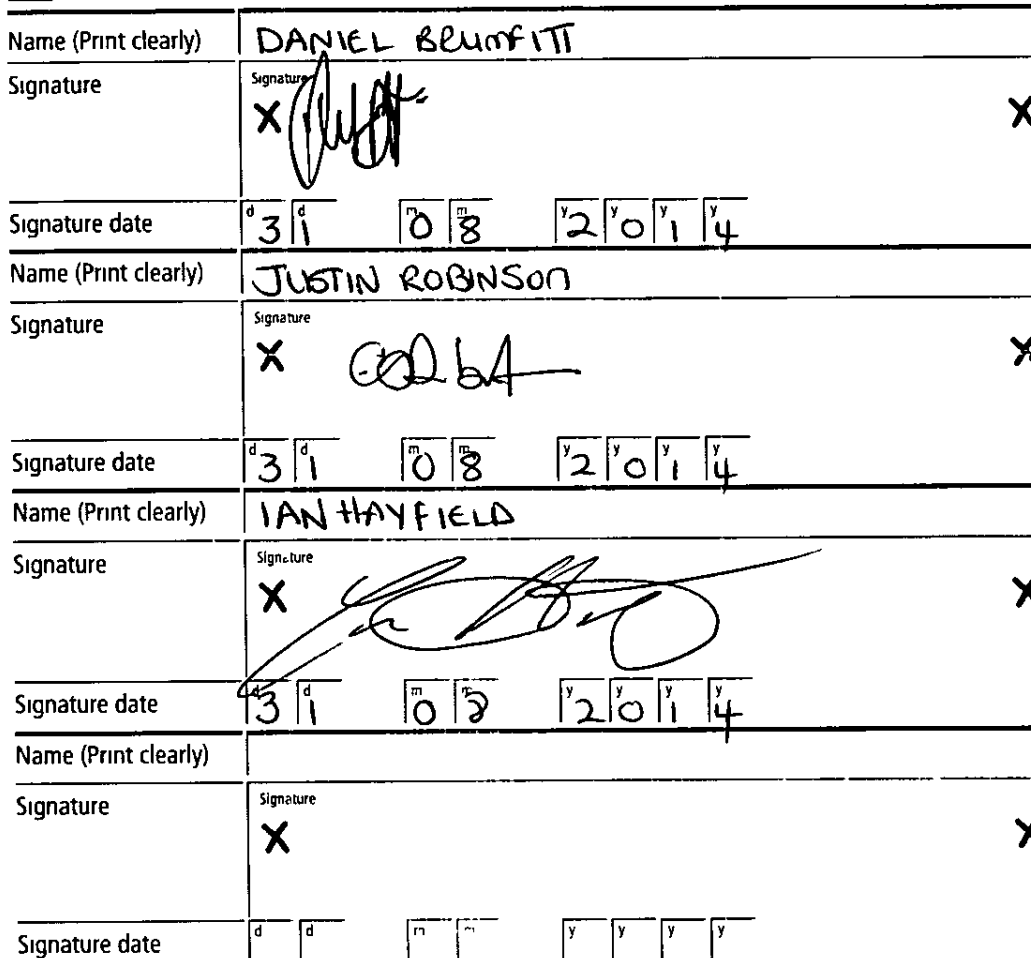 Name (Print clearly) DANIEL BRUMFITT
Signature Signature
X X
Signature date d3 d1 m0 m8 y2 y0 y1 y4
Name (Print clearly) JUSTIN ROBINSON
Signature Signature
X X
Signature date d3 d1 m0 m8 y2 y0 y1 y4
Name (Print clearly) IAN HAYFIELD
Signature Signature
X X
Signature date d3 d1 m0 m8 y2 y0 y1 y4
Name (Print clearly)
Signature Signature
X X
Signature date d d m m y y y y